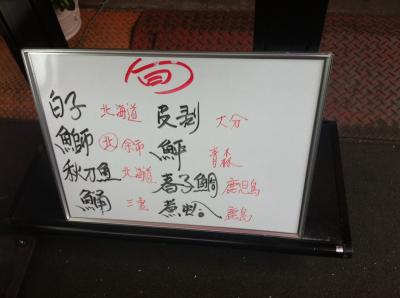 旬
白子 北海道 皮剥 大分
鰤 北 余市 鮃 青森
秋刀魚 北海道 春子鯛 鹿児島
鯒 三重 煮蛤 鹿島